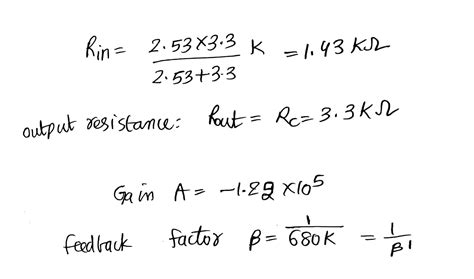 Rin = 2.53×3.3 / 2.53+3.3 K = 1.43 KΩ
output resistance: Rout = Rc = 3.3 KΩ
Gain A = -1.22 ×10^5
feedback factor β = 1/680K = 1/β'